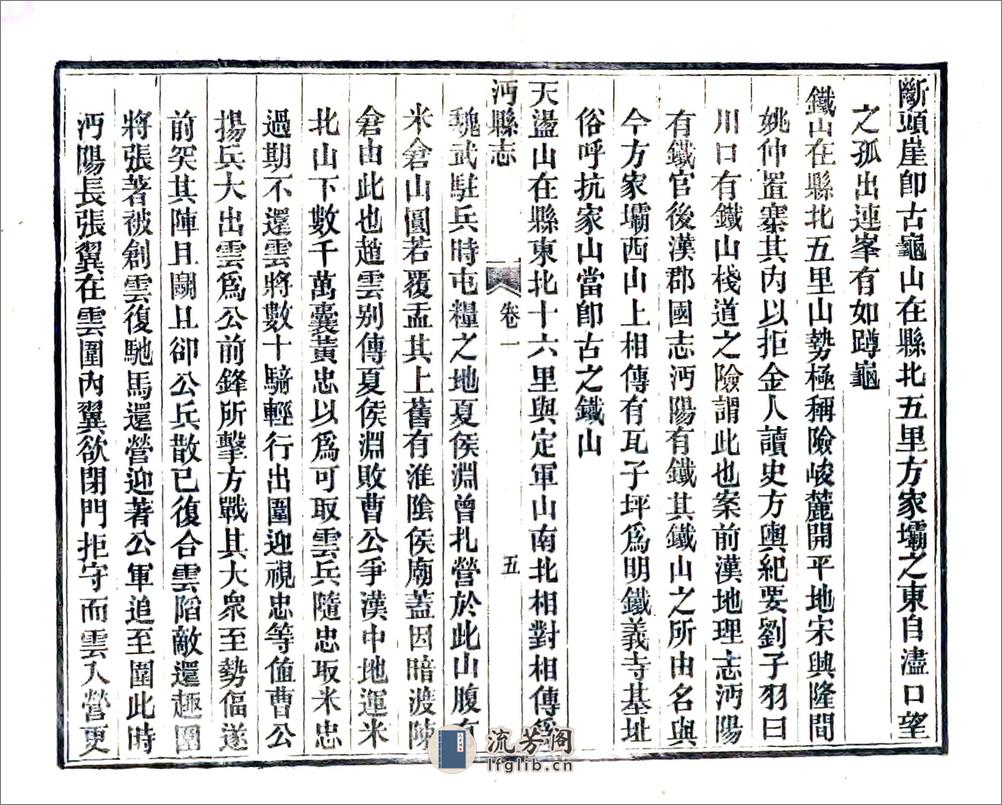 斷頭崖卽古龜山在縣北五里方家壩之東自濜口望
之孤出連峯有如蹲龜
鐵山在縣北五里山勢極稱險峻麓開平地宋興隆間
姚仲置寨其內以拒金人讀史方輿紀要劉子羽曰
川口有鐵山棧道之險謂此也案前漢地理志沔陽
有鐵官後漢郡國志沔陽有鐵其鐵山之所由名與
今方家壩西山上相傳有瓦子坪爲明鐵義寺基址
俗呼抗家山當卽古之鐵山
天盪山在縣東北十六里與定軍山南北相對相傳爲
沔縣志
卷一
五
魏武駐兵時屯糧之地夏侯淵曾扎營於此山腹有
米倉山圓若覆盂其上舊有淮陰侯廟蓋因暗渡陳
倉由此也趙雲別傳夏侯淵敗曹公爭漢中地運米
北山下數千萬囊黃忠以爲可取雲兵隨忠取米忠
過期不還雲將數十騎輕行出圍迎視忠等値曹公
揚兵大出雲爲公前鋒所擊方戰其大衆至勢偪遂
前突其陣且鬬且卻公兵散已復合雲陷敵還趣圍
將張著被創雲復馳馬還營迎著公軍追至圍此時
沔陽長張翼在雲圍內翼欲閉門拒守而雲入營更
流芳阁
lfglib.cn